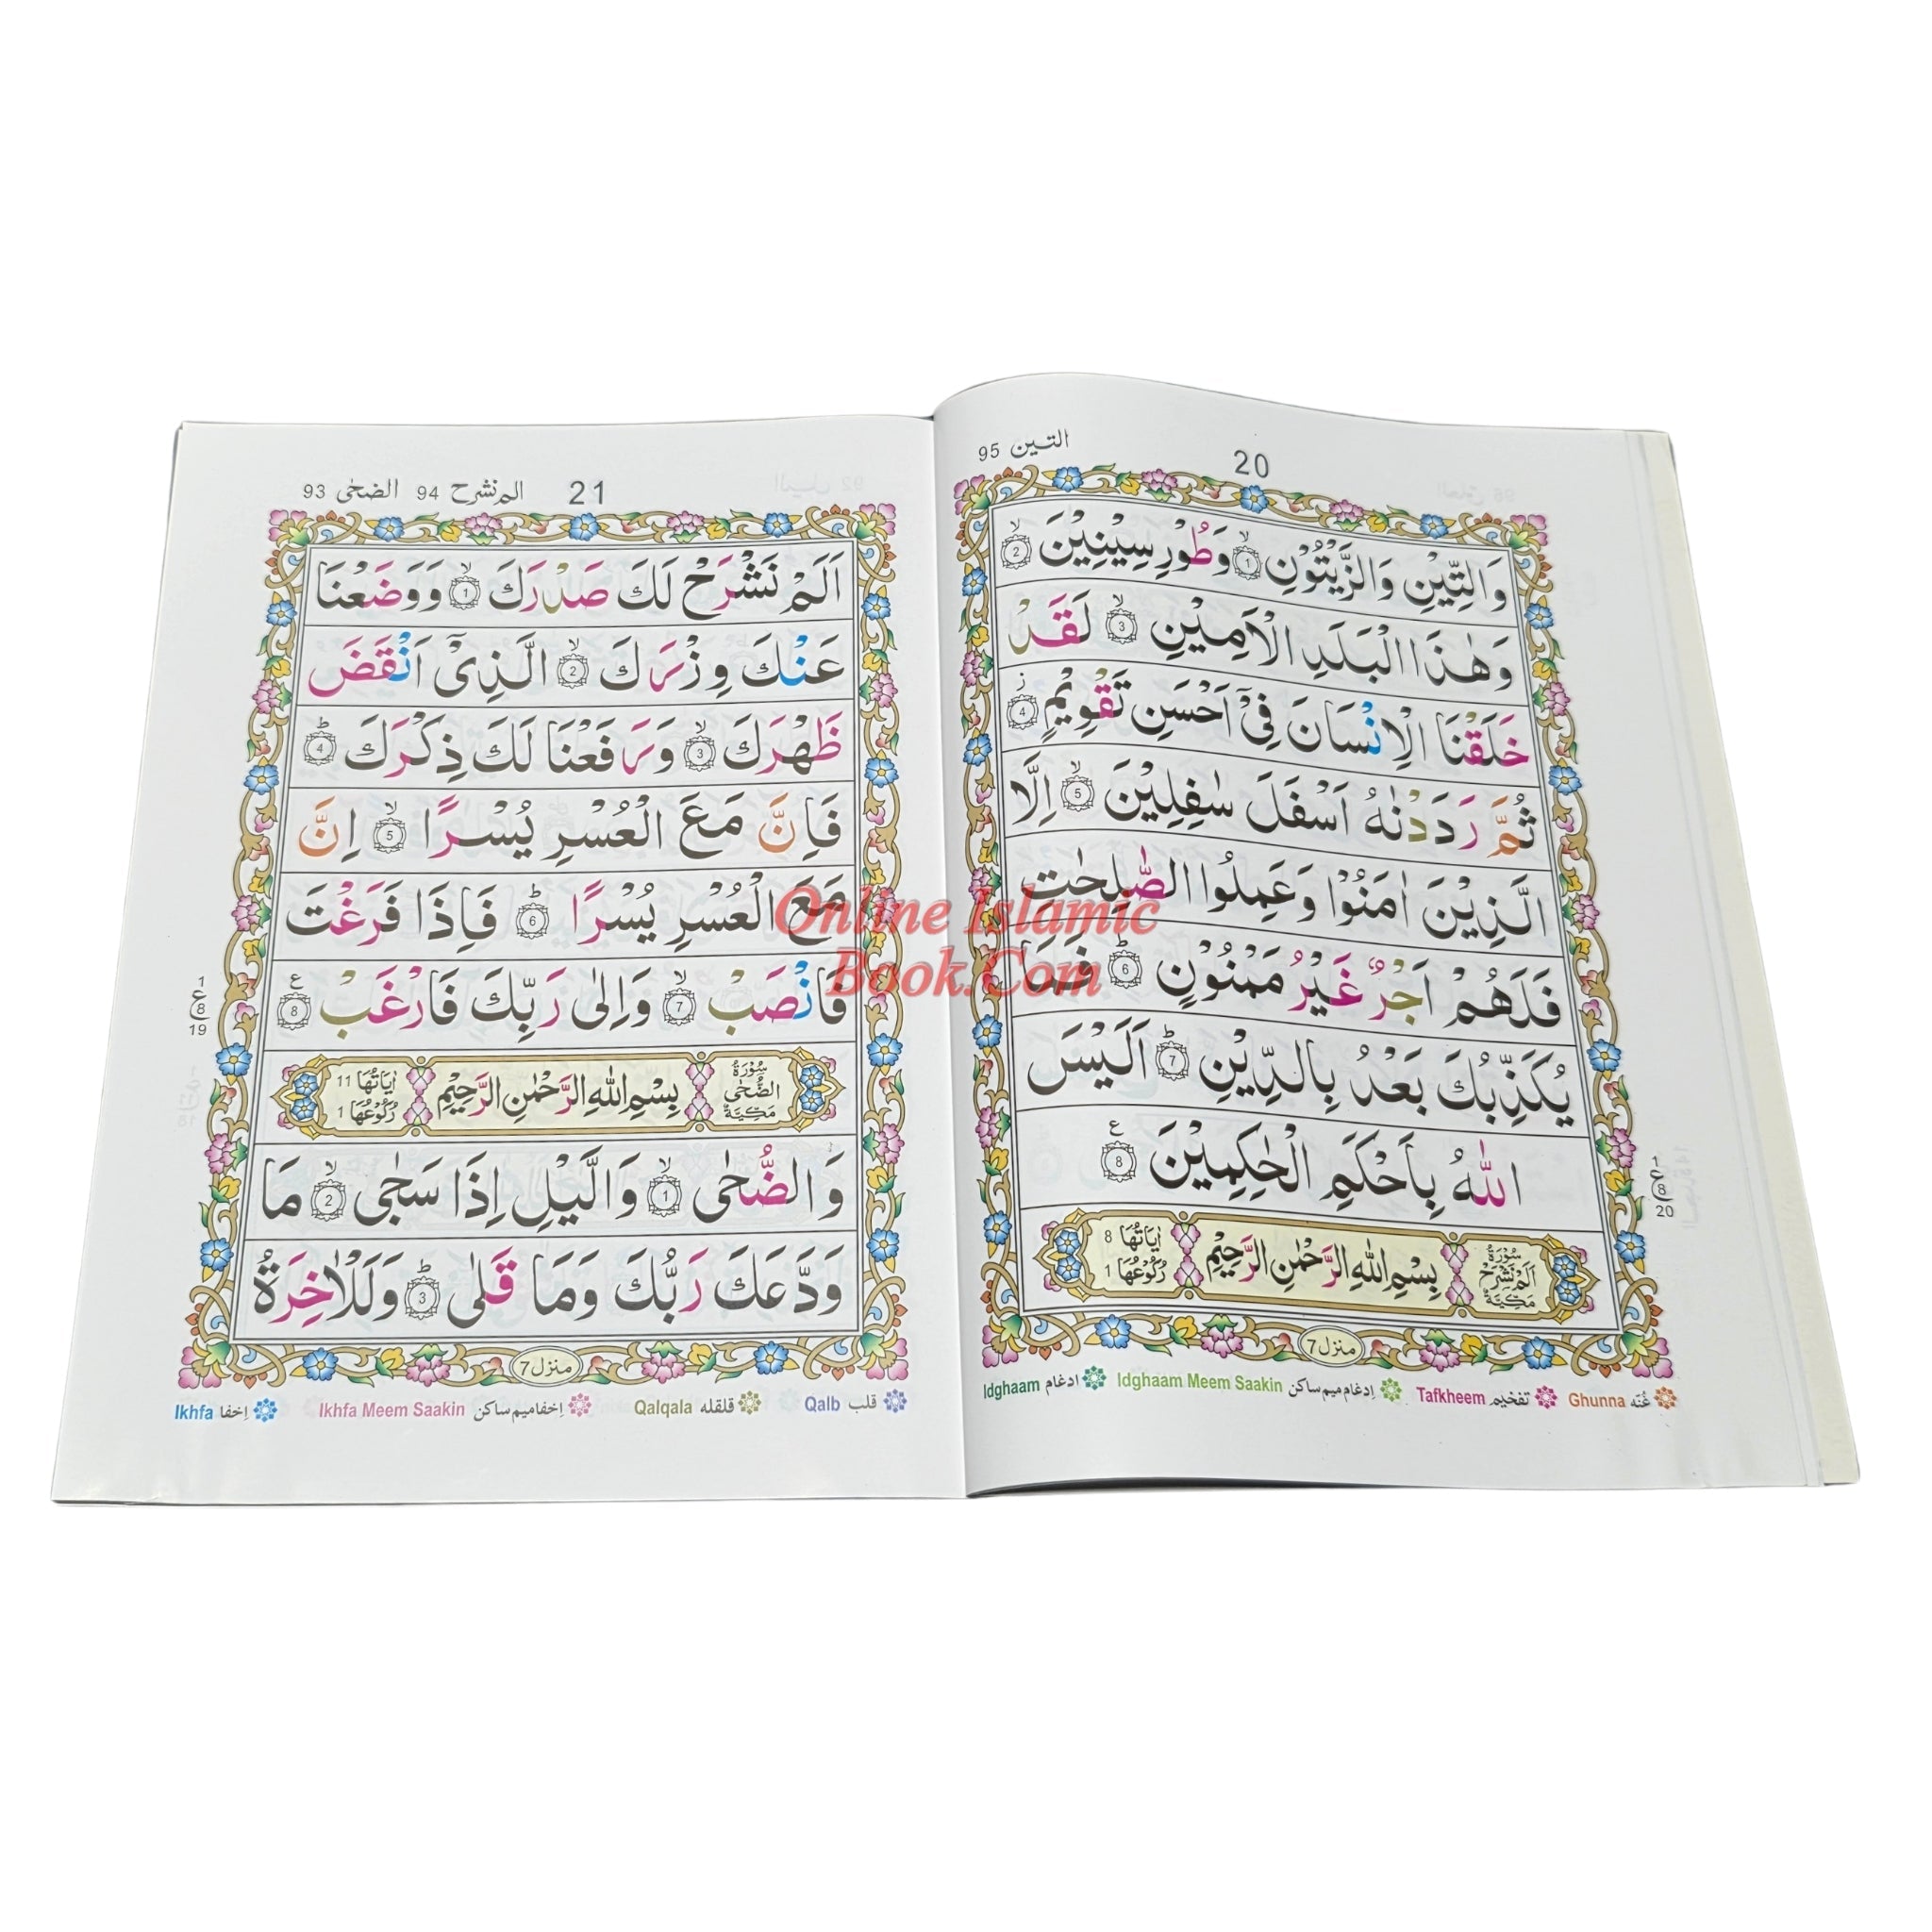 التين 95
20
وَالتِّيْنِ وَالزَّيْتُوْنِ ۙ 1 وَطُوْرِ سِيْنِيْنَ ۙ 2
وَهٰذَا الْبَلَدِ الْاَمِيْنِ ۙ 3 لَقَدْ
خَلَقْنَا الْاِنْسَانَ فِىْٓ اَحْسَنِ تَقْوِيْمٍ ز 4
ثُمَّ رَدَدْنٰهُ اَسْفَلَ سٰفِلِيْنَ ۙ 5 اِلَّا
الَّذِيْنَ اٰمَنُوْا وَعَمِلُوا الصّٰلِحٰتِ
فَلَهُمْ اَجْرٌ غَيْرُ مَمْنُوْنٍ ؕ 6 فَمَا
يُكَذِّبُكَ بَعْدُ بِالدِّيْنِ ؕ 7 اَلَيْسَ
اللّٰهُ بِاَحْكَمِ الْحٰكِمِيْنَ ع 8
1
ع
8
20
سُوْرَةُ اَلَمْ نَشْرَحْ مَكِّيَّةٌ
بِسْمِ اللّٰهِ الرَّحْمٰنِ الرَّحِيْمِ
اٰيَاتُهَا 8
رُكُوْعُهَا 1
منزل 7
Ghunna غُنّه
Tafkheem تفخيم
Idghaam Meem Saakin اِدغام ميم ساكن
Idghaam ادغام
21
الم نشرح 94
الضحٰى 93
اَلَمْ نَشْرَحْ لَكَ صَدْرَكَ ۙ 1 وَوَضَعْنَا
عَنْكَ وِزْرَكَ ۙ 2 الَّذِىْٓ اَنْقَضَ
ظَهْرَكَ ۙ 3 وَرَفَعْنَا لَكَ ذِكْرَكَ ؕ 4
فَاِنَّ مَعَ الْعُسْرِ يُسْرًا ۙ 5 اِنَّ
مَعَ الْعُسْرِ يُسْرًا ؕ 6 فَاِذَا فَرَغْتَ
فَانْصَبْ ۙ 7 وَاِلٰى رَبِّكَ فَارْغَبْ ع 8
1
ع
8
19
سُوْرَةُ الضُّحٰى مَكِّيَّةٌ
بِسْمِ اللّٰهِ الرَّحْمٰنِ الرَّحِيْمِ
اٰيَاتُهَا 11
رُكُوْعُهَا 1
وَالضُّحٰى ۙ 1 وَالَّيْلِ اِذَا سَجٰى ۙ 2 مَا
وَدَّعَكَ رَبُّكَ وَمَا قَلٰى ؕ 3 وَلَلْاٰخِرَةُ
منزل 7
Qalb قلب
Qalqala قلقله
Ikhfa Meem Saakin اِخفا ميم ساكن
Ikhfa اِخفا
Online Islamic
Book.Com